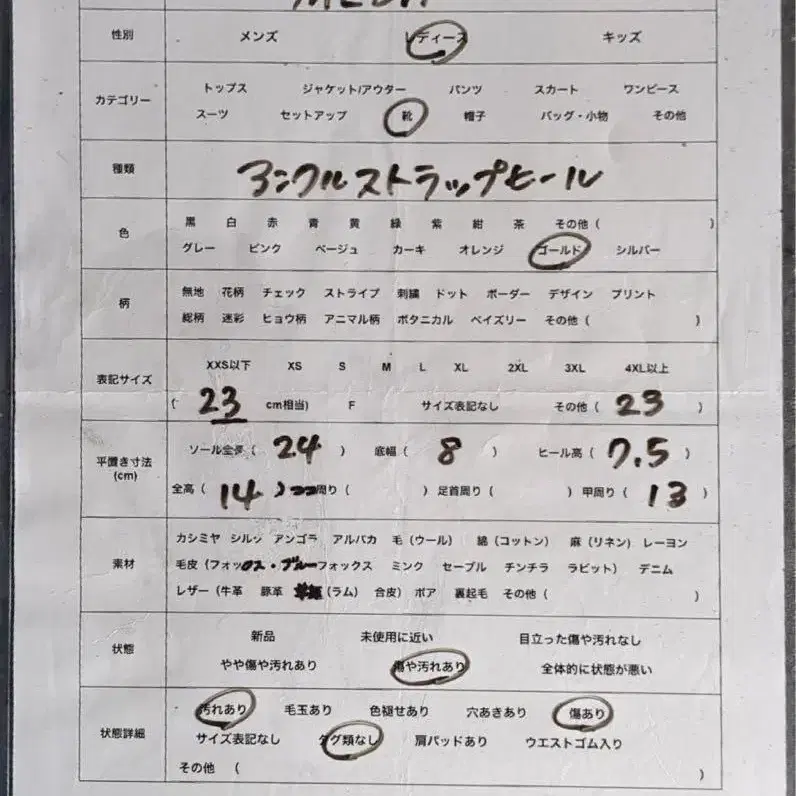 性別 メンズ レディース キッズ
カテゴリー トップス ジャケット/アウター パンツ スカート ワンピース
スーツ セットアップ 靴 帽子 バッグ・小物 その他
種類 アンクルストラップヒール
色 黒 白 赤 青 黄 緑 紫 紺 茶 その他 ( )
グレー ピンク ベージュ カーキ オレンジ ゴールド シルバー
柄 無地 花柄 チェック ストライプ 刺繍 ドット ボーダー デザイン プリント
総柄 迷彩 ヒョウ柄 アニマル柄 ボタニカル ペイズリー その他 ( )
表記サイズ XXS以下 XS S M L XL 2XL 3XL 4XL以上
( 23 cm相当) F サイズ表記なし その他 ( 23 )
平置き寸法 (cm) ソール全長 ( 24 ) 底幅 ( 8 ) ヒール高 ( 7.5 )
全高 ( 14 ) 周り ( ) 足首周り ( ) 甲周り ( 13 )
素材 カシミヤ シルク アンゴラ アルパカ 毛 (ウール) 綿 (コットン) 麻 (リネン) レーヨン
毛皮 (フォックス・ブルーフォックス ミンク セーブル チンチラ ラビット) デニム
レザー (牛革 豚革 (ラム) 合皮) ボア 裏起毛 その他 ( )
状態 新品 未使用に近い 目立った傷や汚れなし
やや傷や汚れあり 傷や汚れあり 全体的に状態が悪い
状態詳細 汚れあり 毛玉あり 色褪せあり 穴あきあり 傷あり
サイズ表記なし タグ類なし 肩パッドあり ウエストゴム入り
その他 ( )